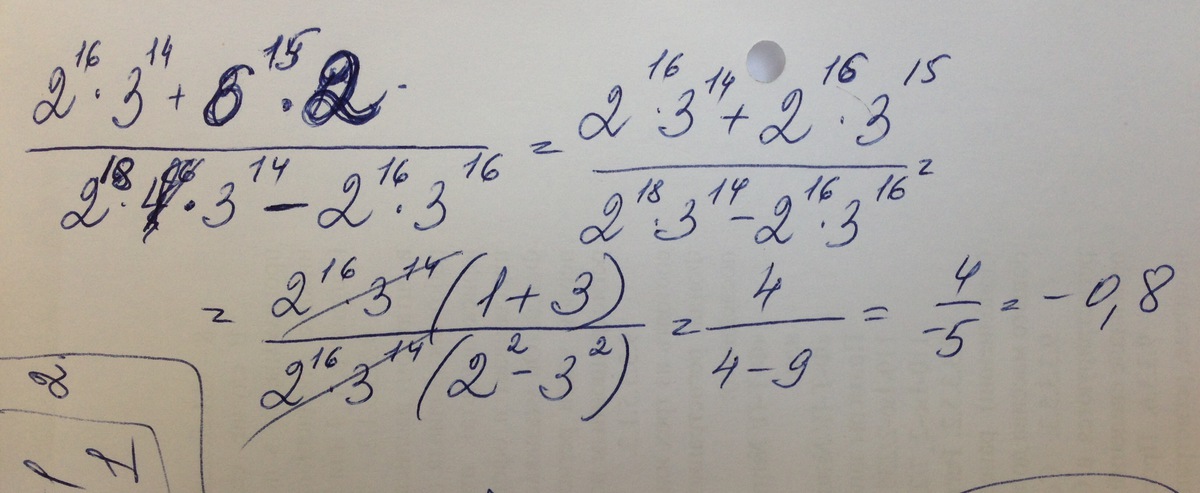 2^16 · 3^14 + 6^15 · 2 / 2^18 · 3^14 - 2^16 · 3^16 = 2^16 · 3^14 + 2^16 · 3^15 / 2^18 · 3^14 - 2^16 · 3^16 =
= 2^16 · 3^14 (1 + 3) / 2^16 · 3^14 (2^2 - 3^2) = 4 / 4 - 9 = 4 / -5 = -0,8
2
1